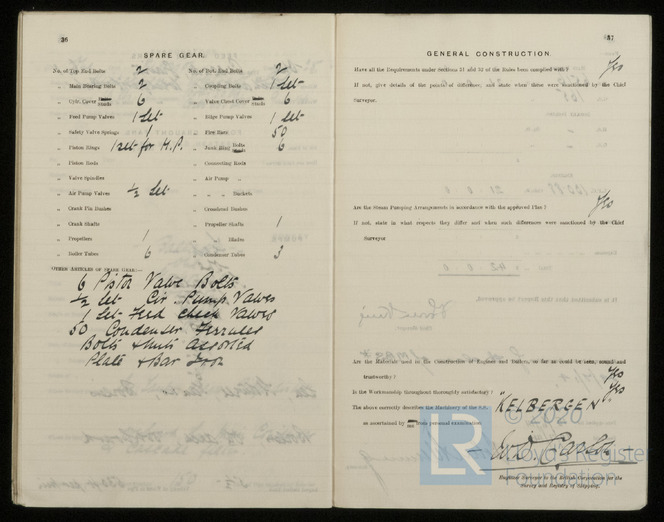 36
SPARE GEAR.
No. of Top End Bolts 2 No. of Bot. End Bolts 2
„ Main Bearing Bolts 2 „ Coupling Bolts 1 Set
„ Cylr. Cover Studs 6 „ Valve Chest Cover Studs 6
„ Feed Pump Valves 1 Set „ Bilge Pump Valves 1 Set
„ Safety Valve Springs 1 „ Fire Bars 50
„ Piston Rings 1 Set for H.P. „ Junk Ring Bolts Studs 6
„ Piston Rods „ Connecting Rods
„ Valve Spindles „ Air Pump „
„ Air Pump Valves ½ Set „ „ Buckets
„ Crank Pin Bushes „ Crosshead Bushes
„ Crank Shafts „ Propeller Shafts 1
„ Propellers 1 „ Blades
„ Boiler Tubes 6 „ Condenser Tubes 3
OTHER ARTICLES OF SPARE GEAR:—
6 Piston Valve Bolts
½ Set Cir. Pump Valves
1 Set Feed Check Valves
50 Condenser Ferrules
Bolts & Nuts assorted
Plate & Bar Iron
37
GENERAL CONSTRUCTION.
Have all the Requirements under Sections 31 and 32 of the Rules been complied with? Yes
If not, give details of the points of difference, and state when these were sanctioned by the Chief
Surveyor.
Are the Steam Pumping Arrangements in accordance with the approved Plan? Yes
If not, state in what respects they differ and when such differences were sanctioned by the Chief
Surveyor
Are the Materials used in the Construction of Engines and Boilers, so far as could be seen, sound and
trustworthy? Yes
Is the Workmanship throughout thoroughly satisfactory? Yes
The above correctly describes the Machinery of the S.S. "KELBERGEN"
as ascertained by from personal examination
Engineer Surveyor to the British Corporation for the
Survey and Registry of Shipping.
LR
© 2020
Lloyd's Register
Foundation